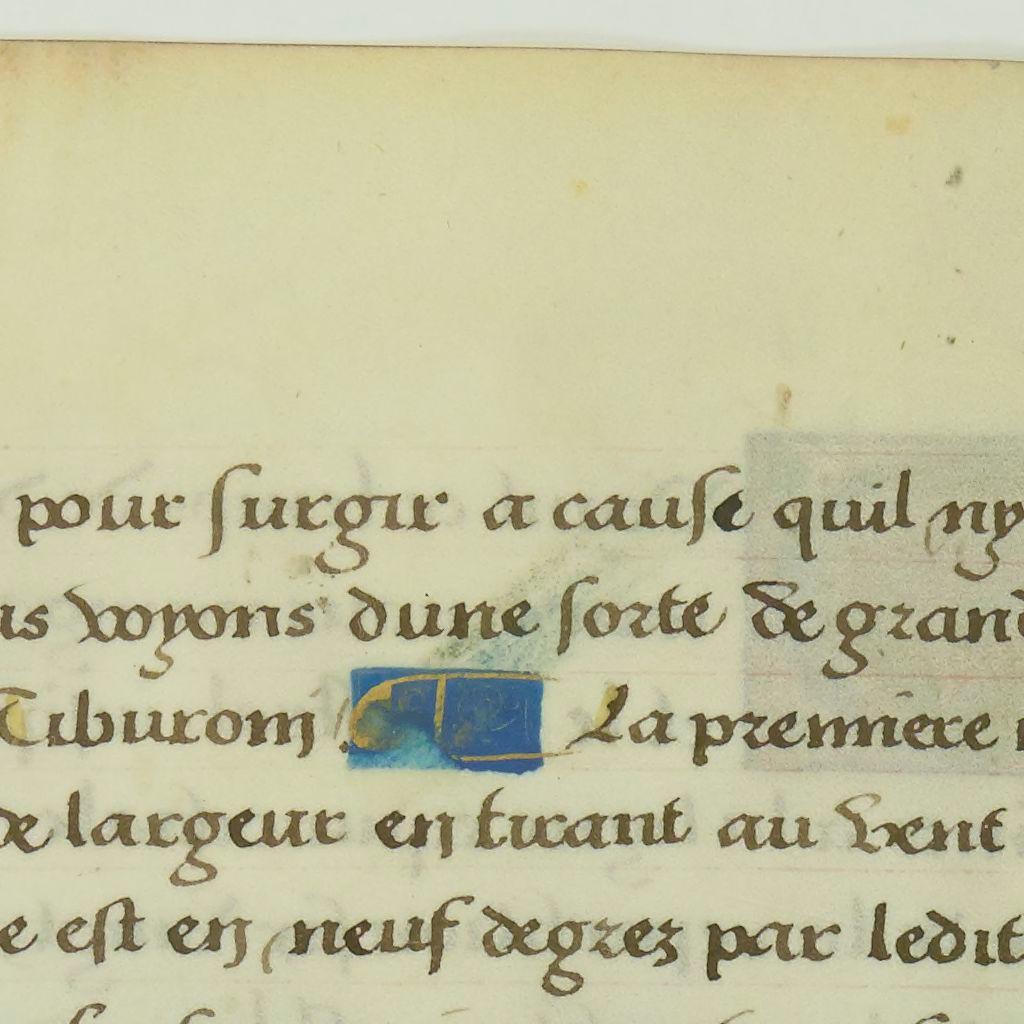 pour surgir a cause quil ny
us voyons dune sorte de grand
Tiburom La premiere
de largeur en tirant au vent
e est en neuf degrez par ledit